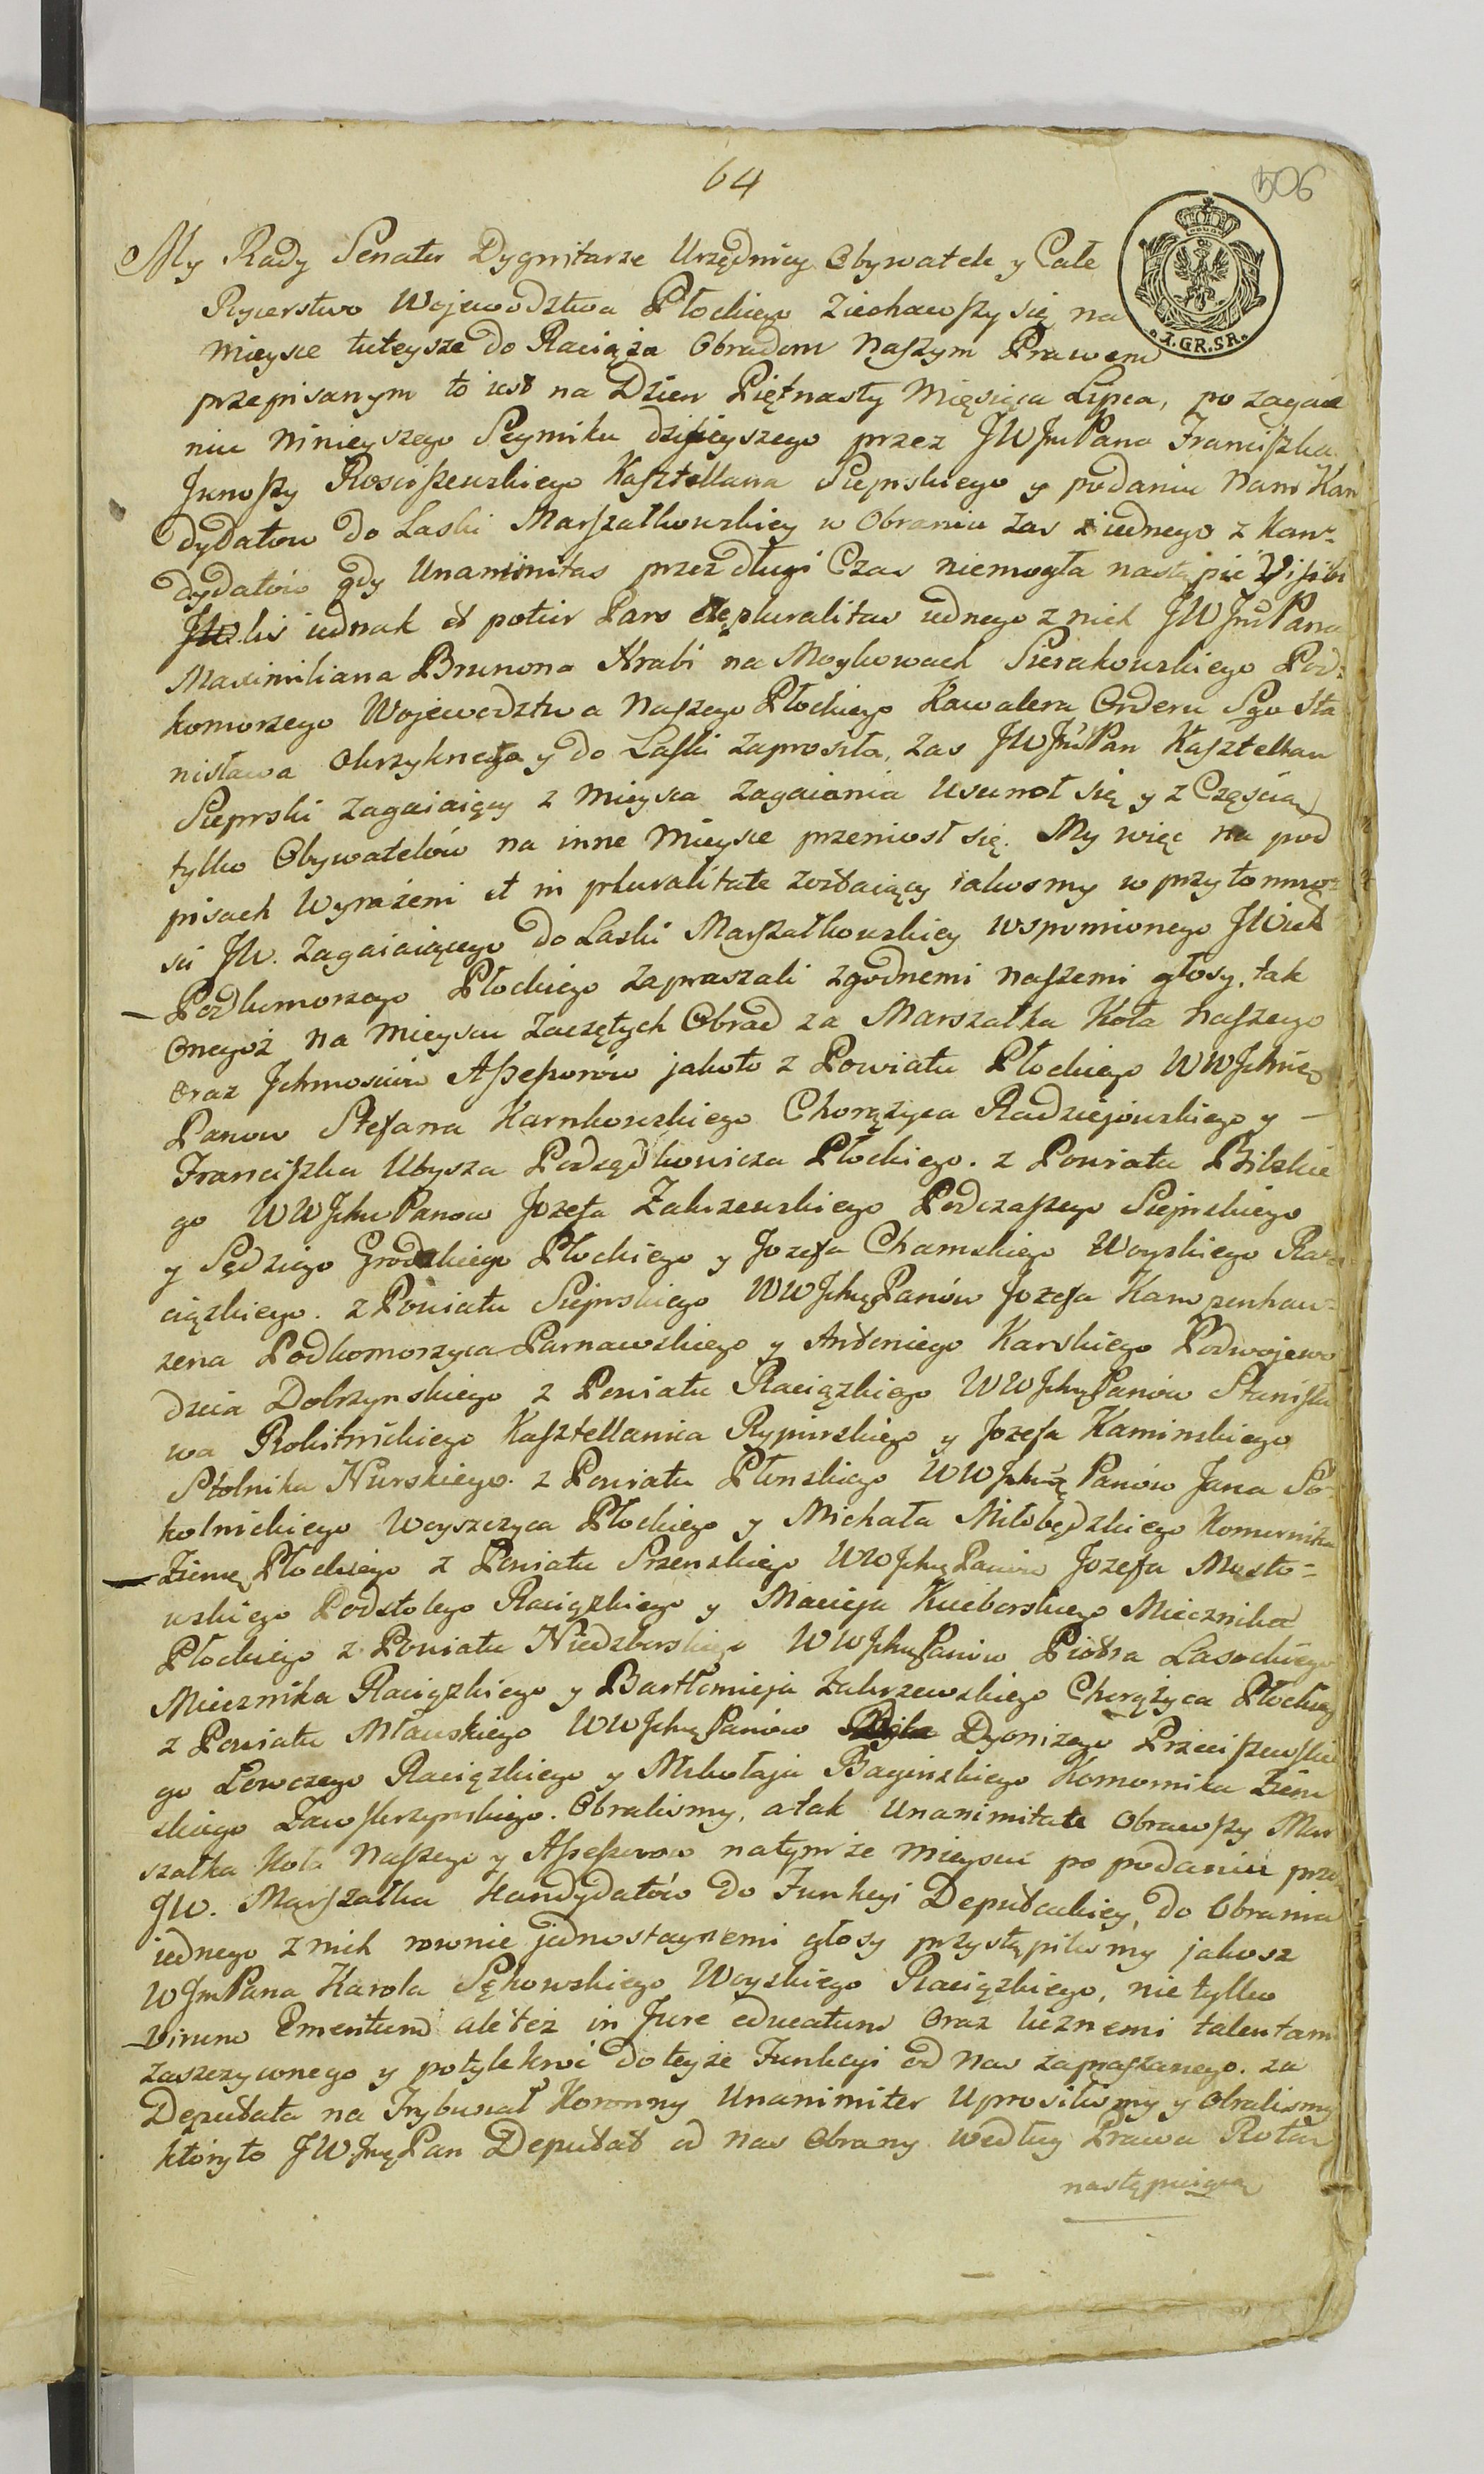 64
506
1.GR.SR.
My Rady Senator Dygnitarze Urzędnicy Obywatele y Całe
Rycerstwo Wojewodztwa Płockiego Ziechawszy się na
Mieysce tuteysze do Raciąża Obradom Naszym Prawem
przepisanym to iest na Dzien Piętnasty Miesiąca Lipca, po zagaie
niu Ninieyszego Seymiku dzisieyszego przez JWJmPana Franciszka
Junoszy Rosciszewskiego Kasztellana Sierpskiego y podaniu Nam Kan
dydatow do Laski Marszałkowskiey w Obraniu zas iednego z Kan-
dydatów gdy Unanimitas przez długi Czas niemogła nastąpić Visibi
lis iednak et potior Pars pluralitas iednego z nich JWJmPana
Maximiliana Brunona Hrabi na Moykowach Sierakowskiego Pod-
komorzego Wojewodztwa Naszego Płockiego Kawalera Orderu Sgo Sta
nisława Okrzyknęła y do Laski zaprosiła, zas JWJmPan Kasztellan
Sierpski Zagaiaiący z Mieysca zagaiania Usunoł się y z Częścią
tylko Obywatelów na inne Mieysce przeniosł się. My więc na pod
pisach Wyrażeni et in pluralitate zostaiący iakosmy w przytomno-
sci JW. Zagaiaiącego do Laski Marszałkowskiey wspomionego JW
Podkomorzego Płockiego zapraszali zgodnemi naszemi głosy, tak
Onegoż na Mieyscu zaczętych Obrad za Marszałka Koła Naszego
Oraz Ichmosciów Assessorów jakoto z Powiatu Płockiego WWJchmę
Panow Stefana Karnkowskiego Chorążyca Radziejowskiego y
Franciszka Ubysza Podsędkowicza Płockiego. z Powiatu Bilskie
go WWJchm Panow Jozefa Zakrzewskiego Podczaszego Sierpskiego
y Sędziego Grodzkiego Płockiego y Jozefa Chamskiego Woyskiego Ra-
ciązkiego. z Powiatu Sierpskiego WWJchmPanów Jozefa Kampenhau-
zena Podkomorzyca Parnawskiego y Antoniego Karskiego Podwojewo
dzica Dobrzynskiego z Powiatu Raciązkiego WWJchmPanów Stanisła
wa Rokitnickiego Kasztellanica Rypinskiego y Jozefa Kaminskiego
Stolnika Nurskiego. z Powiatu Płonskiego WWJchm Panów Jana So-
kolnickiego Woyszczyca Płockiego y Michała Miłobędzkiego Komornika
Ziemę Płockiego z Powiatu Srzenskiego WWJchm Panów Jozefa Mosto-
wskiego Podstolego Raciązkiego y Macieja Kuiborskiego Miecznika
Płockiego z Powiatu Niedzborskiego WWJchmPanów Piotra Lasockiego
Miecznika Raciązkiego y Bartłomieja Zakrzewskiego Chorążyca Płockieg
z Powiatu Mławskiego WWJchmPanów Dyonizego Przeciszewskie
go Łowczego Raciązkiego y Mikołaja Baginskiego Komornika Ziem
skiego Zawskrzynskiego. Obralismy, atak Unanimitate Obrawszy Mar
szałka Koła Naszego y Assessorow natymże Mieyscu po podaniu prze
JW. Marszałka Kandydatów do Funkcyi Deputackiey, do Obrania
iednego z nich rownie jednostaynemi głosy przystąpilismy jakosz
WJmPana Karola Sękowskiego Woyskiego Raciązkiego, nie tylko
Virum Emeritum ale też in Jure educatum Oraz licznemi talentam
zaszczyconego y potylekroć do teyże Funkcyi od Nas zapraszanego. za
Deputata na Trybunał Koronny Unanimiter Uprosilismy y Obralismy
któryto JWJmę Pan Deputat od Nas Obrany według Prawa Rotą
następuiącą